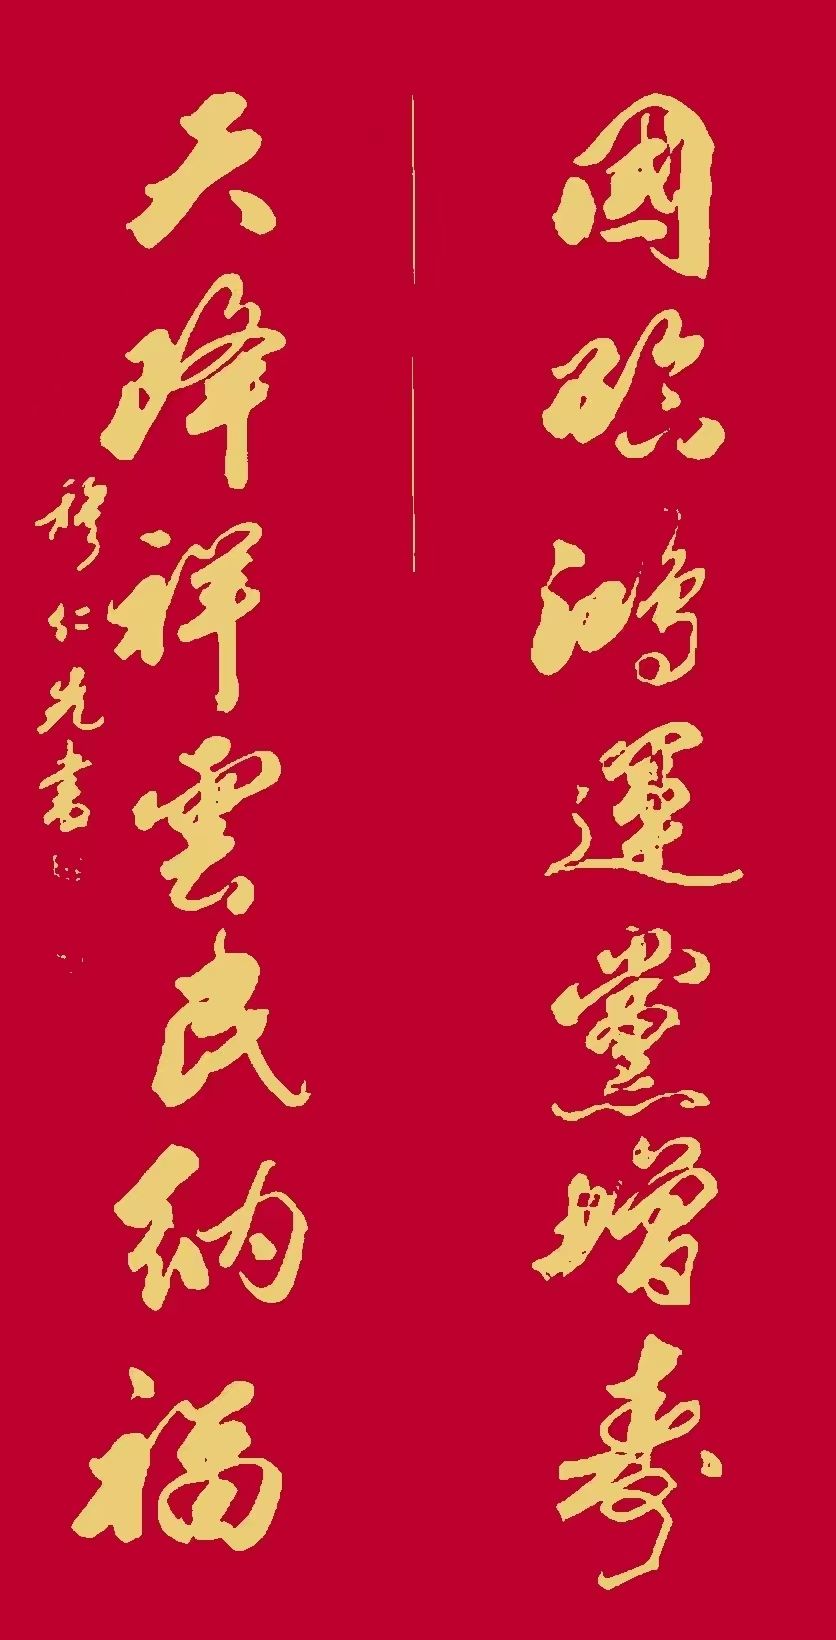 國臨鴻運黨增壽
天降祥雲民納福
穆仁先書